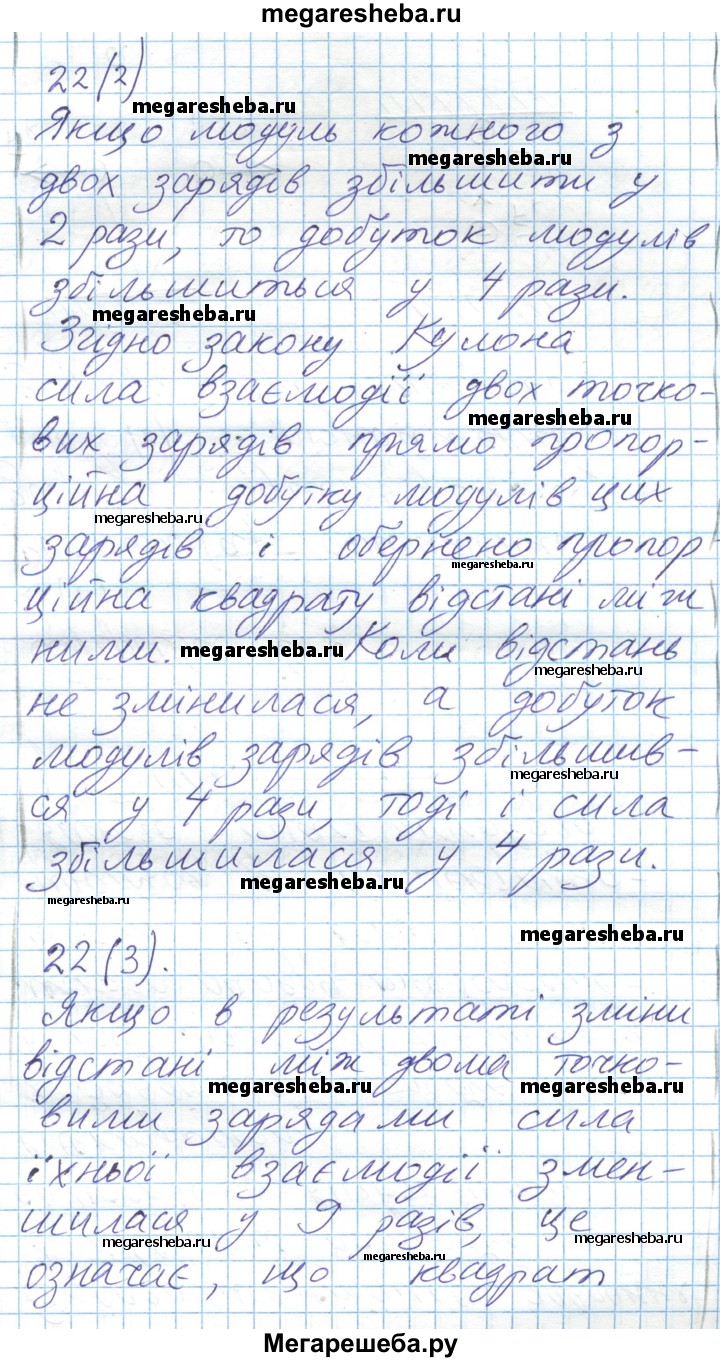 megaresheba.ru
22(2)
megaresheba.ru
Якщо модуль кожного з
megaresheba.ru
двох зарядів збільшити у
2 рази, то добуток модулів
збільшиться у 4 рази.
megaresheba.ru
Згідно закону Кулона
сила взаємодії двох точко-
megaresheba.ru
вих зарядів прямо пропор-
ційна добутку модулів цих
megaresheba.ru
зарядів і обернено пропор
megaresheba.ru
ційна квадрату відстані між
ними. megaresheba.ru Коли відстань
megaresheba.ru
не змінилася, а добуток
модулів зарядів збільшив-
megaresheba.ru
ся у 4 рази, тоді і сила
збільшилася у 4 рази.
megaresheba.ru
megaresheba.ru
megaresheba.ru
22(3).
Якщо в результаті зміни
відстані між двома точко-
megaresheba.ru megaresheba.ru
вими зарядами сила
їхньої взаємодії змен-
шилася у 9 разів, це
megaresheba.ru megaresheba.ru
означає, що квадрат
megaresheba.ru
Мегарешеба.ру